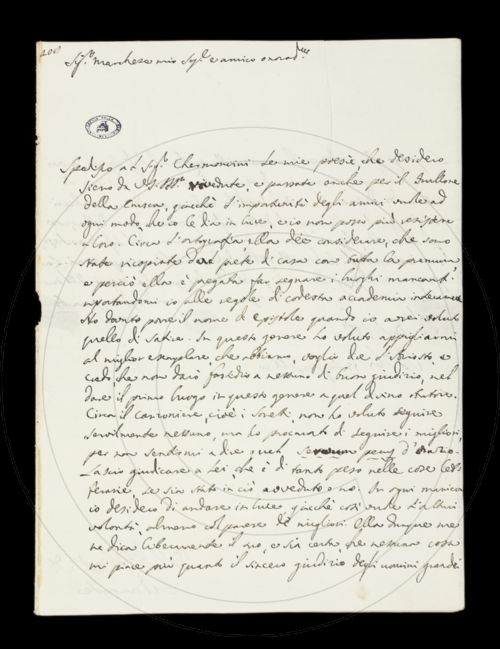 200
Sig.r Marchese mio Sig.e e amico onorad.mo
Spedisco al Sig.r le mie poesie che desidero
sieno da vedute, e passate anche per il frullone
della Crusca, giacchè l'importunità degli amici vuole ad
ogni modo, che io le dia in luce, e io non posso più resistere
a loro. Circa l'ortografia ella dee considerare, che sono
state ricopiate da un prete di casa con tutta la premura
e perciò ella è pregata far segnare i luoghi mancanti
rapportandomi io alle regole di codesta accademia interamente
Ho dovuto porre il nome di Epistole quando io avrei voluto
quello di Satire. In questo genere ho voluto appigliarmi
al miglior esemplare che abbiamo, voglio dire l'Ariosto, e
credo, che non darò fastidio a nessuno di buon giudizio, nel
dare il primo luogo in questo genere a quel divino oratore.
Circa il canzoniere, cioè i Sonetti, non ho voluto seguire
servilmente nessuno, ma ho procurato di seguire i migliori,
per non sentirmi a dire quel servum pecus d'Orazio.
Lascio giudicare a Lei, che è di tanto peso nelle cose lette
rarie, se sia stato in ciò avveduto o no. In ogni maniera
io desidero di andare in luce, giacchè così vuole l'altrui
volontà, almeno col parere de' migliori. Ella dunque me
ne dica liberamente il suo, e sia certa, che nessuna cosa
mi piace più quanto il sincero giudizio degli uomini grandi